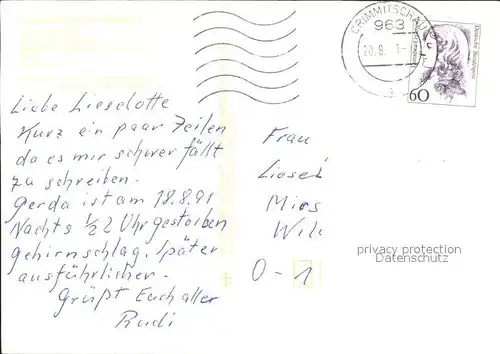 CRIMMITSCHAU
963
20.8.
Deutsche Bundespost
60
Liebe Lieselotte
Kurz ein paar Zeilen
da es mir schwer fällt
zu schreiben.
Gerda ist am 18.8.91
Nachts ½ 2 Uhr gestorben
gehirnschlag, später
ausführlicher.
Grüßt Euch aller
Rudi
Frau
Liesel
O-1
privacy protection
Datenschutz